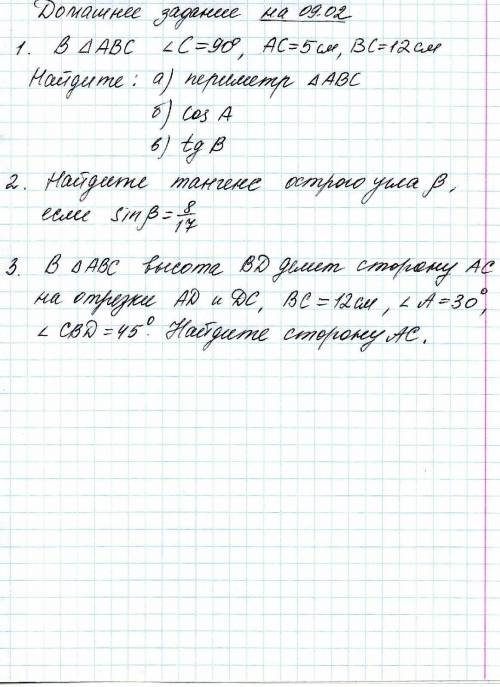 Домашнее задание на 09.02
1. В △ABC ∠C=90°, AC=5см, BC=12см
Найдите: а) периметр △ABC
б) cos A
в) tg B
2. Найдите тангенс острого угла β,
если sinβ = 8/17
3. В △ABC высота BD делит сторону AC
на отрезки AD и DC, BC=12см, ∠A=30°,
∠CBD=45°. Найдите сторону AC.